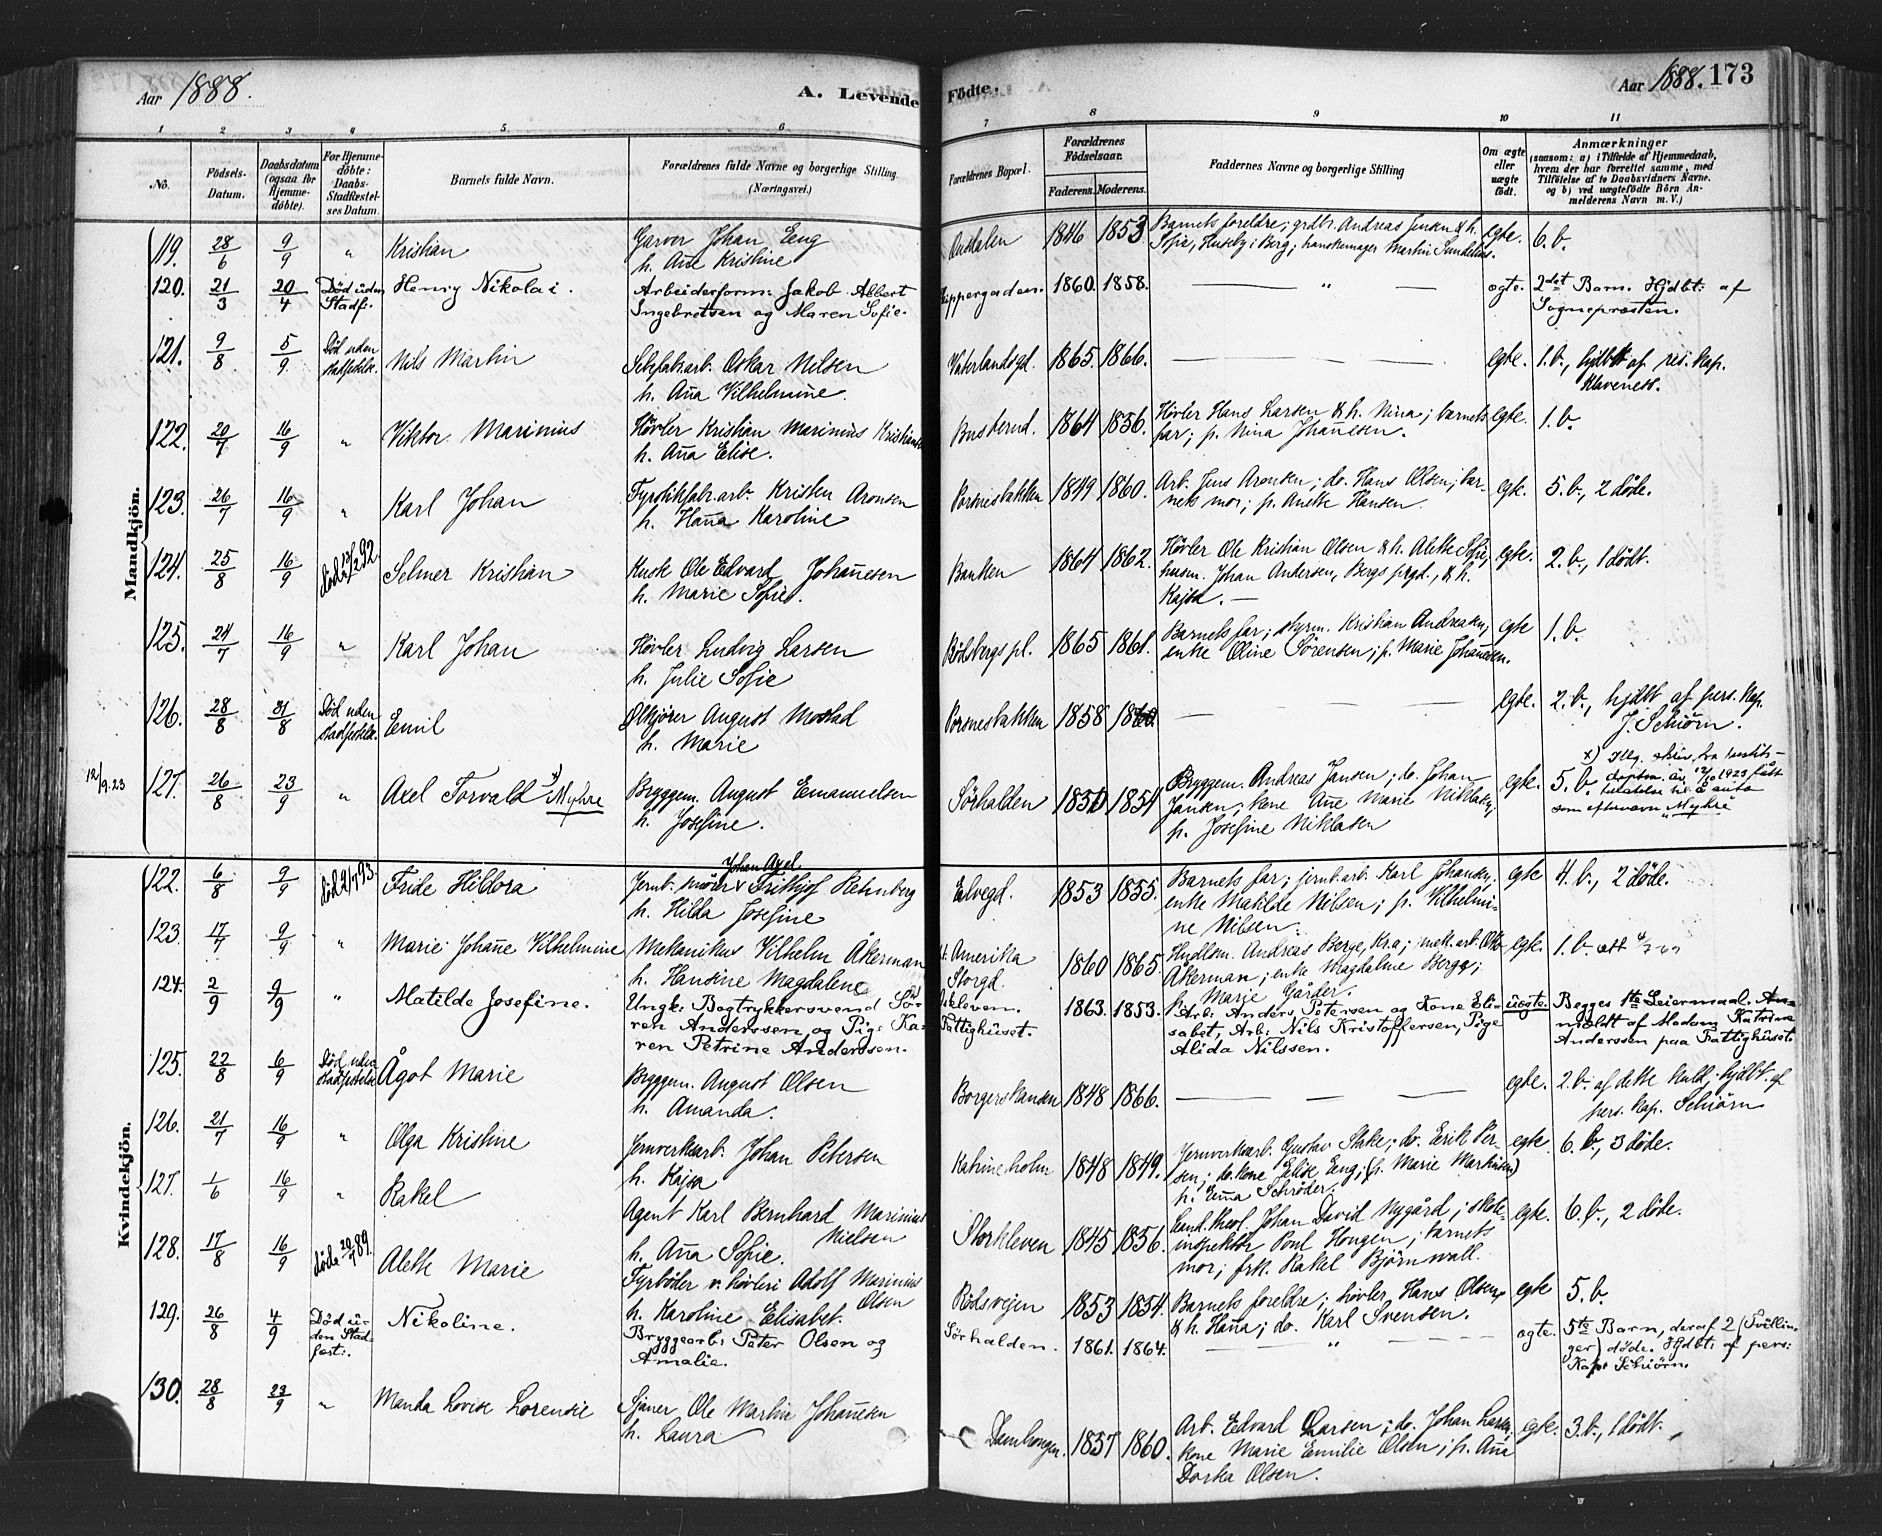 Aar 1888.
A. Levende Fødte.
Aar 1888. 173
1 2 3 4 5. 6 7 8 9 10 11
No.
Fødsels-Datum.
Daabsdatum (ogsaa for Hjemme-døbte).
For Hjemme-døbte: Daabs-Stadfæstel-ses Datum
Barnets fulde Navn.
Forældrenes fulde Navne og borgerlige Stilling (Næringsvei.)
Forældrenes Bopæl.
Forældrenes Fødselsaar.
Faderens. Moderens.
Faddernes Navne og borgerlige Stilling
Om ægte eller uægte født.
Anmærkninger
(saasom: a) i Tilfælde af Hjemmedaab, hvem der har forrettet samme, med Tilføielse af to Daabsvidners Navne. og b) ved uægtefødte Børn Anmelderens Navn m. V.)
Mandkjön.
119. 28/6 9/9 " Kristian
Garver Johan Eeng
h. Ane Kristine
1846 1853
Barnets foreldre; grdbr. Andreas Jensen & h.
Sofie, Huseby i Berg; hanskemager Martin Sundelius.
egte. 6. b.
120. 21/3 20/4 Död uden Stadf. Henry Nikolai.
Arbeiderform: Jakob Albert
Ingebretsen og Maren Sofie.
1860. 1858. — " —
ægte. 2det Barn. Hjdbt: af
Sognepræsten.
121. 9/8 5/9 Död uden stadfestelse Nils Martin
Oskar Nilsen
h. Aña Vilhelmine.
Vaterlandsgd. 1865. 1866. — — —
egte. 1. b., hjdbt af res. Kap.
Klaveness.
122. 20/7 16/9 " Viktor Marinius
Hövler Kristian Marinius Kristiansen
h. Aña Elise.
Busterud. 1864 1856.
Hövler Hans Larsen & h. Nina; barnets
far; p. Nina Johañesen.
egte. 1. b.
123. 26/7 16/9 " Karl Johan
Fyrstikfabr.arb. Kristen Aronsen
h. Haña Karoline
Pornesbakken 1849 1860.
Arb. Jens Aronsen; do. Hans Olsen; bar-
nets mor; p. Anette Hansen.
egte. 5. b., 2 döde.
124. 25/8 16/9 död 92 Selmer Kristian
Kusk Ole Edvard Johañesen
h. Marie Sofie.
Banken 1864 1862.
Hövler Ole Kristian Olsen & h. Alette Sofie,
husm. Johan Andersen, Bergs prgd., & h.
Kajsa. —
egte. 2. b., 1 dödt.
125. 24/7 16/9 " Karl Johan
Hövler Ludvig Larsen
h. Julie Sofie
Rödsbergs pl. 1865 1861.
Barnets far; styrm. Kristian Andreasen,
enke Oline Sörensen; p. Marie Johañesen.
egte 1. b.
126. 28/8 31/8 Död uden stadfestelse Emil
Ölkjörer August Mostad
h. Marie
Pornesbakken 1858 1860. — — —
egte. 2. b., hjdbt af pers. Kap.
J. Schiörn.
12/9.23
127. 26/8 23/9 " Axel Torvald x) Myhre
Bryggem. August Emanuelsen
h. Josefine.
Sörhalden 1850 1854
Bryggem. Andreas Jansen; do. Johan
Jansen; kone Ane Marie Niklasen,
p. Josefine Niklasen
egte. 5. b.
1923 fått
som efternavn "Myhre"
Kvindekjön.
122. 6/8 9/9 Fride Hildora
Johan Axel
Fridtjof Rehnberg
h. Hilda Josefine
Elvegd. 1853 1855.
Barnets far; jernb.arb. Karl Johansen;
enke Matilde Nilsen; p. Vilhelmi-
ne Nilsen.
egte 4. b., 2 döde.
123. 17/7 9/9 " Marie Johañe Vilhelmine
Mekanikus Vilhelm Åkerman
h. Hansine Magdalene
Amerika
Storgd. 1860 1865.
Hndlsm. Andreas Berge, Kr.a; mek. arb. Otto
Åkerman; enke Magdaline Berge;
p. Marie Gårder.
egte. 1. b.
124. 2/9 9/9 " Matilde Josefine.
Ungk: Bogtrykkersvend Sö-
ren Anderssen og Pige Ka-
ren Petrine Anderssen.
Fattighuset. 1863. 1853.
Arb: Anders Petersen og Kone Eli-
sabet, Arb: Nils Kristoffersen, Pige
Alida Nilssen.
uægte. Begges 1ste Leiermaal. An-
meldt af Madam Katrine
Anderssen paa Fattighuset.
125. 22/8 6/9 Död uden stadfestelse Ågot Marie
Bryggem. August Olsen
h. Amanda.
Borgerskansen 1848 1866. — — —
egte. 2. b. af dette kuld, hjdbt. af
pers. Kap. Schiörn
126. 21/7 16/9 " Olga Kristine
Jernverksarb. Johan Petersen
h. Kajsa
Katrineholm 1848 1849.
Jernverksarb. Gustav Stake; do. Erik Per-
sen; do. kone Elise Eeng; (p. Marie Martinsen)
p. Emma Schröder.
egte. 6. b., 3 döde.
127. 1/6 16/9 " Rakel
Agent Karl Bernhard Marinius
Nielsen
h. Aña Sofie.
Storkleven 1845 1856.
Cand. theol. Johan David Nygård; skole-
inspektör Poul Hougen; barnets
mor; frk. Rakel Björnwall.
egte. 6. b., 2 döde.
128. 17/8 16/9 död 20/7 89. Alette Marie
Fyrböder v. hövleri Adolf Marinius
Olsen
h. Karoline Elisabet.
Rödsvejen 1853 1854.
Barnets foreldre; hövler Hans Olsen,
& h. Haña; do. Karl Svensen.
egte 5. b.
129. 26/8 4/9 Död u-den Stad-fest: Nikoline.
Bryggearb: Peter Olsen og
Amalie.
Sörhalden. 1861. 1864. — " —
ægte. 5te Barn, deraf 2 (Tvillin-
ger) døde. Hjdbt: af pers:
Kap: Schiörn.
130. 28/8 23/9 " Manda Lovise Lorense
Sjöner Ole Martin Johañesen
h. Laura
Damhougen. 1857 1860.
Arb. Edvard Larsen; do. Johan Larsen,
kone Marie Emilie Olsen; p. Aña
Dorka Olsen.
egte. 3. b., 1 dödt.